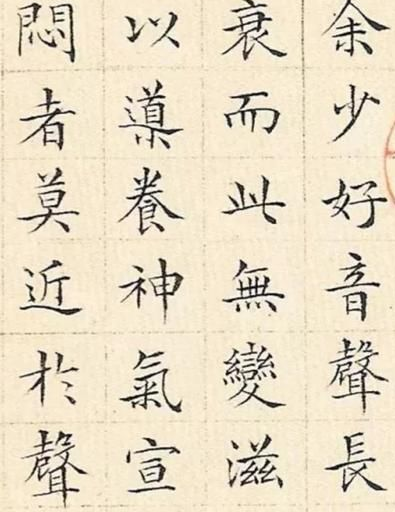 余少好音聲長
衰而此無變滋
以導養神氣宣
悶者莫近於聲